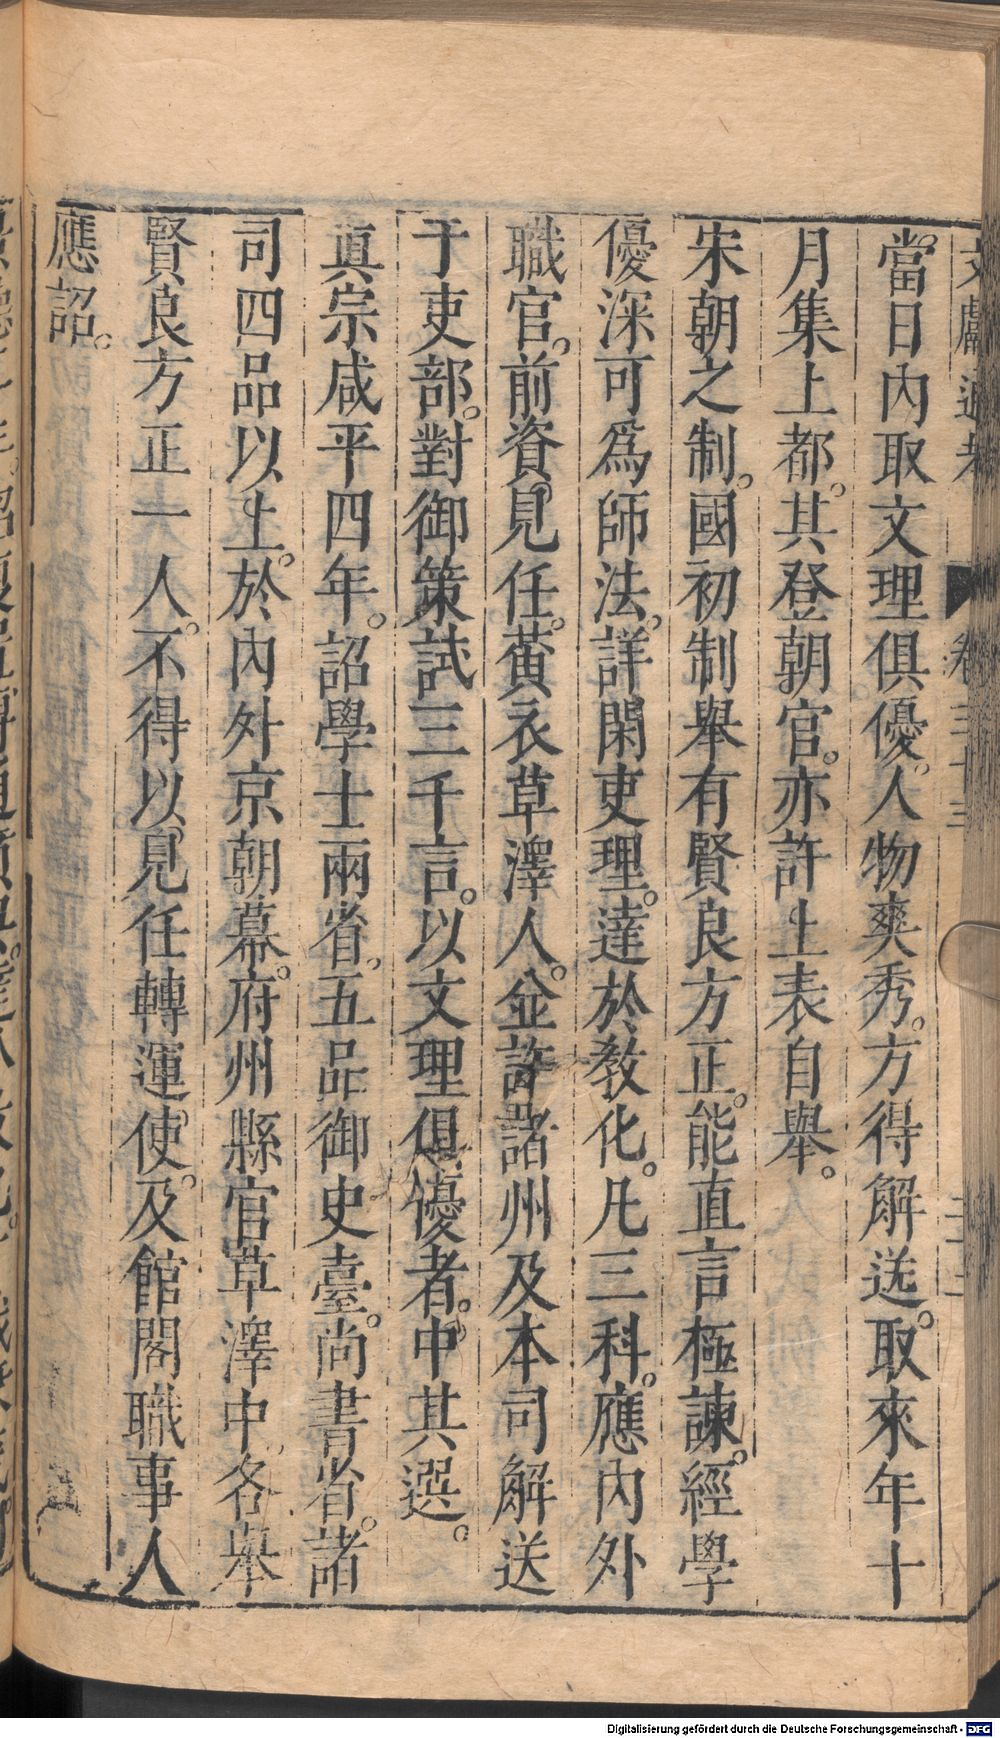 文獻通考 卷三十三
當日內取文理俱優。人物爽秀。方得解送。取來年十
月集上都。其登朝官。亦許上表自舉。
宋朝之制。國初制舉有賢良方正。能直言極諫。經學
優深可爲師法。詳閑吏理。達於敎化。凡三科。應內外
職官。前資見任。黃衣草澤人。並許諸州及本司解送
于吏部。對御策試三千言。以文理俱優者。中其選。
眞宗咸平四年。詔學士兩省。五品御史臺。尚書省。諸
司四品以上。於內外京朝幕。府州縣官草澤中各舉
賢良方正一人。不得以見任轉運使。及館閣職事人
應詔。
Digitalisierung gefördert durch die Deutsche Forschungsgemeinschaft - DFG